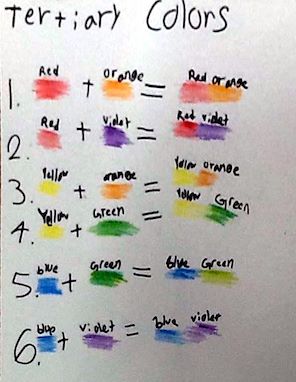 Tertiary Colors
1. Red + orange = Red orange
2. Red + violet = Red violet
3. Yellow + orange = Yellow orange
4. Yellow + Green = Yellow Green
5. blue + Green = blue Green
6. blue + violet = blue violet